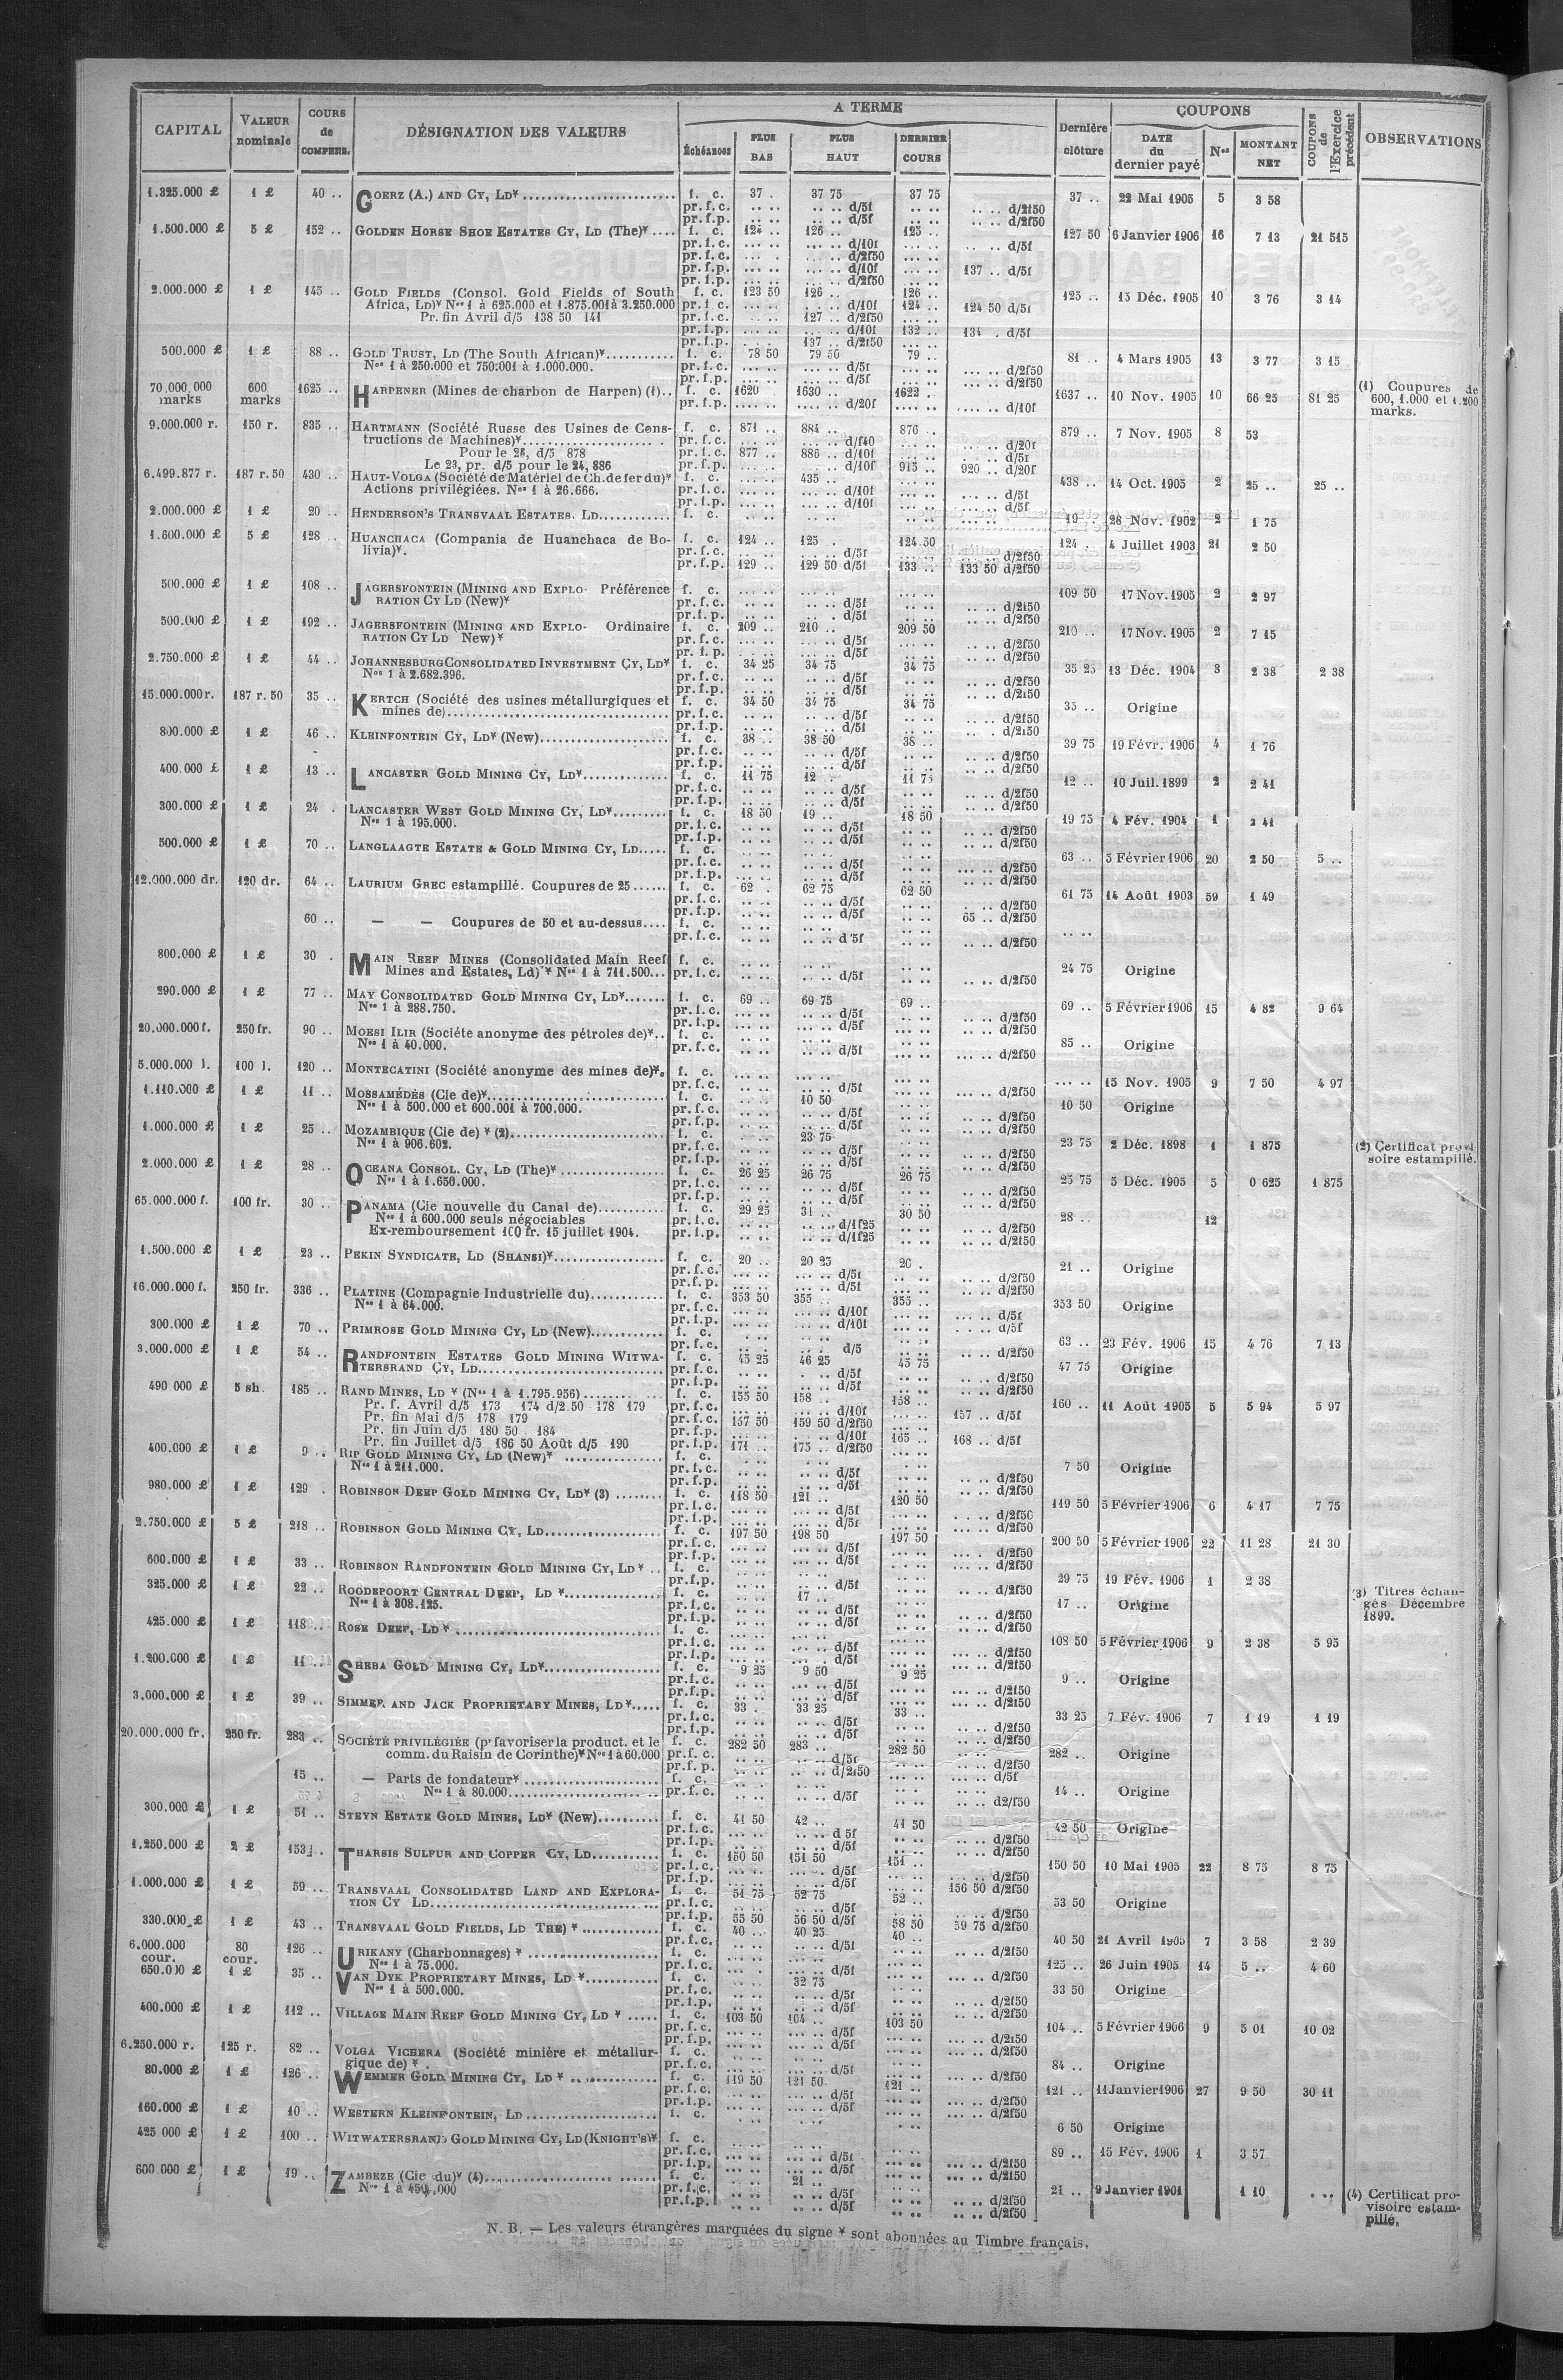 CAPITAL | VALEUR nominale | COURS de COMPENS. | DÉSIGNATION DES VALEURS | A TERME | Dernière clôture | COUPONS | COUPONS de l'Exercice précédent | OBSERVATIONS
Échéances | PLUS BAS | PLUS HAUT | DERNIER COURS | DATE du dernier payé | Nos | MONTANT NET
1.325.000 £ | 1 £ | 40 .. | GOERZ (A.) AND CY, LD* | f. c. | 37 . | 37 75 | 37 75 | 37 .. | 22 Mai 1905 | 5 | 3 58
pr.f.c. | .. .. | .. .. d/5f | .. .. | .. .. d/2f50
pr.f.p. | .. .. | .. .. d/5f | .. .. | .. .. d/2f50
1.500.000 £ | 5 £ | 152 .. | GOLDEN HORSE SHOE ESTATES CY, LD (The)* | f. c. | 124 .. | 126 .. | 125 .. | 127 50 | 6 Janvier 1906 | 16 | 7 13 | 21 515
pr.f.c. | d/10f | d/5f
pr.f.c. | d/2f50
pr.f.p. | d/10f | 137 .. d/5f
pr.f.p. | d/2f50
2.000.000 £ | 1 £ | 145 .. | GOLD FIELDS (Consol. Gold Fields of South | f. c. | 123 50 | 126 .. | 126 .. | 125 .. | 15 Déc. 1905 | 10 | 3 76 | 3 14
Africa, LD)* Nos 1 à 625.000 et 1.875.001 à 3.250.000 | pr.f.c. | d/10f | 124 .. | 124 50 d/5f
Pr. fin Avril d/5 138 50 141 | pr.f.c. | 127 .. d/2f50
pr.f.p. | d/10f | 132 .. | 134 . d/5f
pr.f.p. | 137 .. d/2f50
500.000 £ | 1 £ | 88 .. | GOLD TRUST, LD (The South African)* | f. c. | 78 50 | 79 50 | 79 .. | 81 .. | 4 Mars 1905 | 13 | 3 77 | 3 15
Nos 1 à 250.000 et 750.001 à 1.000.000. | pr.f.c. | d/5f | d/2f50
pr.f.p. | d/5f | d/2f50
70.000.000 marks | 600 marks | 1625 .. | HARPENER (Mines de charbon de Harpen) (1) | f. c. | 1620 | 1630 .. | 1622 . | 1637 .. | 10 Nov. 1905 | 10 | 66 25 | 81 25 | (1) Coupures de 600, 1.000 et 1.200 marks.
pr.f.p. | d/20f | d/10f
9.000.000 r. | 150 r. | 835 .. | HARTMANN (Société Russe des Usines de Cens- | f. c. | 871 .. | 884 .. | 876 . | 879 .. | 7 Nov. 1905 | 8 | 53
tructions de Machines)* | pr.f.c. | d/f40 | d/20f
Pour le 28, d/5 878 | pr.f.c. | 877 .. | 886 .. d/10f | d/5f
Le 23, pr. d/5 pour le 24, 886 | pr.f.p. | d/10f | 915 .. | 920 .. d/20f
6.499.877 r. | 187 r. 50 | 430 .. | HAUT-VOLGA (Société de Matériel de Ch. de fer du)* | f. c. | 435 .. | 438 .. | 14 Oct. 1905 | 2 | 25 .. | 25 ..
Actions privilégiées. Nos 1 à 26.666. | pr.f.c. | d/10f | d/5f
pr.f.p. | d/10f | d/5f
2.000.000 £ | 1 £ | 20 .. | HENDERSON'S TRANSVAAL ESTATES. LD | f. c. | 19 . | 28 Nov. 1902 | 2 | 1 75
1.600.000 £ | 5 £ | 128 .. | HUANCHACA (Compania de Huanchaca de Bo- | f. c. | 124 .. | 125 . | 124 50 | 124 . | 4 Juillet 1903 | 21 | 2 50
livia)*. | pr.f.c. | d/5f | d/2f50
pr.f.p. | 129 .. | 129 50 d/5f | 133 .. | 133 50 d/2f50
500.000 £ | 1 £ | 108 .. | JAGERSFONTEIN (MINING AND EXPLO- Préférence | f. c. | 109 50 | 17 Nov. 1905 | 2 | 2 97
RATION CY LD (New)* | pr.f.c. | d/5f | d/2f50
pr.f.p. | d/5f | d/2f50
500.000 £ | 1 £ | 192 .. | JAGERSFONTEIN (MINING AND EXPLO- Ordinaire | f. c. | 209 .. | 210 .. | 209 50 | 210 .. | 17 Nov. 1905 | 2 | 7 15
RATION CY LD New)* | pr.f.c. | d/5f | d/2f50
pr.f.p. | d/5f | d/2f50
2.750.000 £ | 1 £ | 44 .. | JOHANNESBURG CONSOLIDATED INVESTMENT CY, LD* | f. c. | 34 25 | 34 75 | 34 75 | 35 25 | 13 Déc. 1904 | 3 | 2 38 | 2 38
Nos 1 à 2.682.396. | pr.f.c. | d/5f | d/2f50
pr.f.p. | d/5f | d/2f50
15.000.000 r. | 187 r. 50 | 35 .. | KERTCH (Société des usines métallurgiques et | f. c. | 34 50 | 34 75 | 34 75 | 35 .. | Origine
mines de) | pr.f.c. | d/5f | d/2f50
pr.f.p. | d/5f | d/2f50
800.000 £ | 1 £ | 46 .. | KLEINFONTEIN CY, LD* (New) | f. c. | 38 .. | 38 50 | 38 .. | 39 75 | 19 Févr. 1906 | 4 | 1 76
pr.f.c. | d/5f | d/2f50
pr.f.p. | d/5f | d/2f50
400.000 £ | 1 £ | 13 .. | LANCASTER GOLD MINING CY, LD* | f. c. | 11 75 | 12 .. | 11 75 | 12 .. | 10 Juil. 1899 | 2 | 2 41
pr.f.c. | d/5f | d/2f50
pr.f.p. | d/5f | d/2f50
300.000 £ | 1 £ | 24 . | LANCASTER WEST GOLD MINING CY, LD* | f. c. | 18 50 | 19 .. | 18 50 | 19 75 | 4 Fév. 1904 | 1 | 2 41
Nos 1 à 195.000. | pr.f.c. | d/5f | d/2f50
pr.f.p. | d/5f | d/2f50
500.000 £ | 1 £ | 70 .. | LANGLAAGTE ESTATE & GOLD MINING CY, LD | f. c. | 63 .. | 5 Février 1906 | 20 | 2 50 | 5 ..
pr.f.c. | d/5f | d/2f50
pr.f.p. | d/5f | d/2f50
12.000.000 dr. | 120 dr. | 64 .. | LAURIUM GREC estampillé. Coupures de 25 | f. c. | 62 . | 62 75 | 62 50 | 61 75 | 14 Août 1903 | 59 | 1 49
pr.f.c. | d/5f | d/2f50
pr.f.p. | d/5f | 65 .. d/2f50
60 .. | — — Coupures de 50 et au-dessus | f. c.
pr.f.c. | d/5f | d/2f50
800.000 £ | 1 £ | 30 . | MAIN REEF MINES (Consolidated Main Reef | f. c. | 24 75 | Origine
Mines and Estates, Ld)* Nos 1 à 711.500 | pr.f.c. | d/5f | d/2f50
290.000 £ | 1 £ | 77 .. | MAY CONSOLIDATED GOLD MINING CY, LD* | f. c. | 69 .. | 69 75 | 69 .. | 69 .. | 5 Février 1906 | 15 | 4 82 | 9 64
Nos 1 à 288.750. | pr.f.c. | d/5f | d/2f50
pr.f.p. | d/5f | d/2f50
20.000.000 f. | 250 fr. | 90 .. | MOESI ILIR (Société anonyme des pétroles de)* | f. c. | 85 .. | Origine
Nos 1 à 40.000. | pr.f.c. | d/5f | d/2f50
5.000.000 l. | 100 l. | 120 .. | MONTECATINI (Société anonyme des mines de)* | f. c. | 15 Nov. 1905 | 9 | 7 50 | 4 97
pr.f.c. | d/5f | d/2f50
1.110.000 £ | 1 £ | 11 .. | MOSSAMÉDÈS (Cie de)* | f. c. | 10 50 | 10 50 | Origine
Nos 1 à 500.000 et 600.001 à 700.000. | pr.f.c. | d/5f | d/2f50
pr.f.p. | d/5f | d/2f50
1.000.000 £ | 1 £ | 25 .. | MOZAMBIQUE (Cie de) * (2) | f. c. | 23 75 | 23 75 | 2 Déc. 1898 | 1 | 1 875 | (2) Certificat provisoire estampillé.
Nos 1 à 906.602. | pr.f.c. | d/5f | d/2f50
pr.f.p. | d/5f | d/2f50
2.000.000 £ | 1 £ | 28 .. | OCEANA CONSOL. CY, LD (The)* | f. c. | 26 25 | 26 75 | 26 75 | 25 75 | 5 Déc. 1905 | 5 | 0 625 | 1 875
Nos 1 à 1.650.000. | pr.f.c. | d/5f | d/2f50
pr.f.p. | d/5f | d/2f50
65.000.000 f. | 100 fr. | 30 .. | PANAMA (Cie nouvelle du Canal de) | f. c. | 29 25 | 31 .. | 30 50 | 28 .. | 12
Nos 1 à 600.000 seuls négociables | pr.f.c. | d/1f25 | d/2f50
Ex-remboursement 100 fr. 15 juillet 1904. | pr.f.p. | d/1f25 | d/2f50
1.500.000 £ | 1 £ | 23 .. | PEKIN SYNDICATE, LD (SHANSI)* | f. c. | 20 .. | 20 25 | 20 . | 21 .. | Origine
pr.f.c. | d/5f | d/2f50
pr.f.p. | d/5f | d/2f50
16.000.000 f. | 250 fr. | 336 .. | PLATINE (Compagnie Industrielle du) | f. c. | 353 50 | 355 .. | 355 .. | 353 50 | Origine
Nos 1 à 64.000. | pr.f.c. | d/10f | d/5f
pr.f.p. | d/10f | d/5f
300.000 £ | 1 £ | 70 .. | PRIMROSE GOLD MINING CY, LD (New) | f. c. | 63 .. | 23 Fév. 1906 | 15 | 4 76 | 7 13
pr.f.c. | d/5 | d/2f50
3.000.000 £ | 1 £ | 54 .. | RANDFONTEIN ESTATES GOLD MINING WITWA- | f. c. | 45 25 | 46 25 | 45 75 | 47 75 | Origine
TERSRAND CY, LD | pr.f.c. | d/5f | d/2f50
pr.f.p. | d/5f | d/2f50
490 000 £ | 5 sh. | 185 .. | RAND MINES, LD * (Nos 1 à 1.795.956) | f. c. | 155 50 | 158 .. | 158 .. | 160 .. | 11 Août 1905 | 5 | 5 94 | 5 97
Pr. f. Avril d/5 173 174 d/2.50 178 179 | pr.f.c. | d/10f | 157 .. d/5f
Pr. fin Mai d/5 178 179 | pr.f.c. | 157 50 | 159 50 d/2f50
Pr. fin Juin d/5 180 50 184 | pr.f.p. | d/10f | 165 .. | 168 .. d/5f
Pr. fin Juillet d/5 186 50 Août d/5 190 | pr.f.p. | 171 .. | 175 .. d/2f50
400.000 £ | 1 £ | 9 .. | RIP GOLD MINING CY, LD (New)* | f. c. | 7 50 | Origine
Nos 1 à 211.000. | pr.f.c. | d/5f | d/2f50
pr.f.p. | d/5f | d/2f50
980.000 £ | 1 £ | 129 . | ROBINSON DEEP GOLD MINING CY, LD* (3) | f. c. | 118 50 | 121 .. | 120 50 | 119 50 | 5 Février 1906 | 6 | 4 17 | 7 75
pr.f.c. | d/5f | d/2f50
pr.f.p. | d/5f | d/2f50
2.750.000 £ | 5 £ | 218 .. | ROBINSON GOLD MINING CY, LD | f. c. | 197 50 | 198 50 | 197 50 | 200 50 | 5 Février 1906 | 22 | 11 28 | 21 30
pr.f.c. | d/5f | d/2f50
pr.f.p. | d/5f | d/2f50
600.000 £ | 1 £ | 33 .. | ROBINSON RANDFONTEIN GOLD MINING CY, LD* | f. c. | 29 75 | 19 Fév. 1906 | 1 | 2 38
pr.f.p. | d/5f | d/2f50
325.000 £ | 1 £ | 22 .. | ROODEPOORT CENTRAL DEEP, LD * | f. c. | 17 .. | 17 .. | Origine | (3) Titres échangés Décembre 1899.
Nos 1 à 308.125. | pr.f.c. | d/5f | d/2f50
pr.f.p. | d/5f | d/2f50
425.000 £ | 1 £ | 118 .. | ROSE DEEP, LD * | f. c. | 108 50 | 5 Février 1906 | 9 | 2 38 | 5 95
pr.f.c. | d/5f | d/2f50
pr.f.p. | d/5f | d/2f50
1.200.000 £ | 1 £ | 11 .. | SHEBA GOLD MINING CY, LD* | f. c. | 9 25 | 9 50 | 9 25 | 9 .. | Origine
pr.f.c. | d/5f | d/2f50
pr.f.p. | d/5f | d/2f50
3.000.000 £ | 1 £ | 39 .. | SIMMER AND JACK PROPRIETARY MINES, LD* | f. c. | 33 . | 33 25 | 33 .. | 33 25 | 7 Fév. 1906 | 7 | 1 19 | 1 19
pr.f.c. | d/5f | d/2f50
pr.f.p. | d/5f | d/2f50
20.000.000 fr. | 250 fr. | 283 .. | SOCIÉTÉ PRIVILÉGIÉE (pr favoriser la product. et le | f. c. | 282 50 | 283 .. | 282 50 | 282 .. | Origine
comm. du Raisin de Corinthe)* Nos 1 à 60.000 | pr.f.c. | d/5f | d/2f50
pr.f.p. | d/2f50 | d/5f
15 .. | — Parts de fondateur* | f. c. | 14 .. | Origine
Nos 1 à 80.000 | pr.f.c. | d/5f | d2/f50
300.000 £ | 1 £ | 51 .. | STEYN ESTATE GOLD MINES, LD* (New) | f. c. | 41 50 | 42 .. | 41 50 | 42 50 | Origine
pr.f.c. | d 5f | d/2f50
pr.f.p. | d/5f | d/2f50
1.250.000 £ | 2 £ | 153 .. | THARSIS SULFUR AND COPPER CY, LD | f. c. | 150 50 | 151 50 | 151 .. | 150 50 | 10 Mai 1905 | 22 | 8 75 | 8 75
pr.f.c. | d/5f | d/2f50
pr.f.p. | d/5f | 156 50 d/2f50
1.000.000 £ | 1 £ | 59 .. | TRANSVAAL CONSOLIDATED LAND AND EXPLORA- | f. c. | 51 75 | 52 75 | 52 .. | 53 50 | Origine
TION CY LD | pr.f.c. | d/5f | d/2f50
pr.f.p. | 55 50 | 56 50 d/5f | 58 50 | 59 75 d/2f50
330.000 £ | 1 £ | 43 .. | TRANSVAAL GOLD FIELDS, LD THE) * | f. c. | 40 .. | 40 25 | 40 .. | 40 50 | 21 Avril 1905 | 7 | 3 58 | 2 39
pr.f.c. | d/5f | d/2f50
6.000.000 cour. | 80 cour. | 126 .. | URIKANY (Charbonnages) * | f. c. | 125 .. | 26 Juin 1905 | 14 | 5 .. | 4 60
Nos 1 à 75.000. | pr.f.c. | d/5f | d/2f50
650.000 £ | 1 £ | 35 .. | VAN DYK PROPRIETARY MINES, LD * | f. c. | 32 75 | 33 50 | Origine
Nos 1 à 500.000. | pr.f.c. | d/5f | d/2f50
pr.f.p. | d/5f | d/2f50
400.000 £ | 1 £ | 112 .. | VILLAGE MAIN REEF GOLD MINING CY, LD * | f. c. | 103 50 | 104 .. | 103 50 | 104 .. | 5 Février 1906 | 9 | 5 01 | 10 02
pr.f.c. | d/5f | d/2f50
pr.f.p. | d/5f | d/2f50
6.250.000 r. | 125 r. | 82 .. | VOLGA VICHERA (Société minière et métallur- | f. c. | 84 .. | Origine
gique de) * . | pr.f.c. | d/5f | d/2f50
80.000 £ | 1 £ | 126 .. | WEMMER GOLD MINING CY, LD * | f. c. | 119 50 | 121 50 | 121 .. | 121 .. | 11 Janvier 1906 | 27 | 9 50 | 30 11
pr.f.c. | d/5f | d/2f50
pr.f.p. | d/5f | d/2f50
160.000 £ | 1 £ | 10 .. | WESTERN KLEINFONTEIN, LD | f. c. | 6 50 | Origine
425 000 £ | 1 £ | 100 .. | WITWATERSRAND GOLD MINING CY, LD (KNIGHT'S)* | f. c. | 89 .. | 15 Fév. 1906 | 1 | 3 57
pr.f.c. | d/5f | d/2f50
pr.f.p. | d/5f | d/2f50
600.000 £ | 1 £ | 19 .. | ZAMBEZE (Cie du)* (4) | f. c. | 21 .. | 21 .. | 9 Janvier 1901 | 1 10 | ... | (4) Certificat provisoire estampillé.
Nos 1 à 450.000 | pr.f.c. | d/5f | d/2f50
pr.f.p. | d/5f | d/2f50
N. B. — Les valeurs étrangères marquées du signe * sont abonnées au Timbre français.